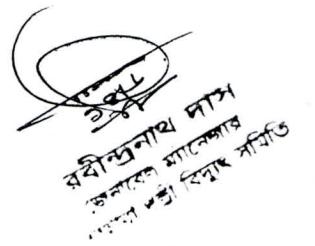 রবীন্দ্রনাথ দাস
জেনারেল ম্যানেজার
পল্লী বিদ্যুৎ সমিতি